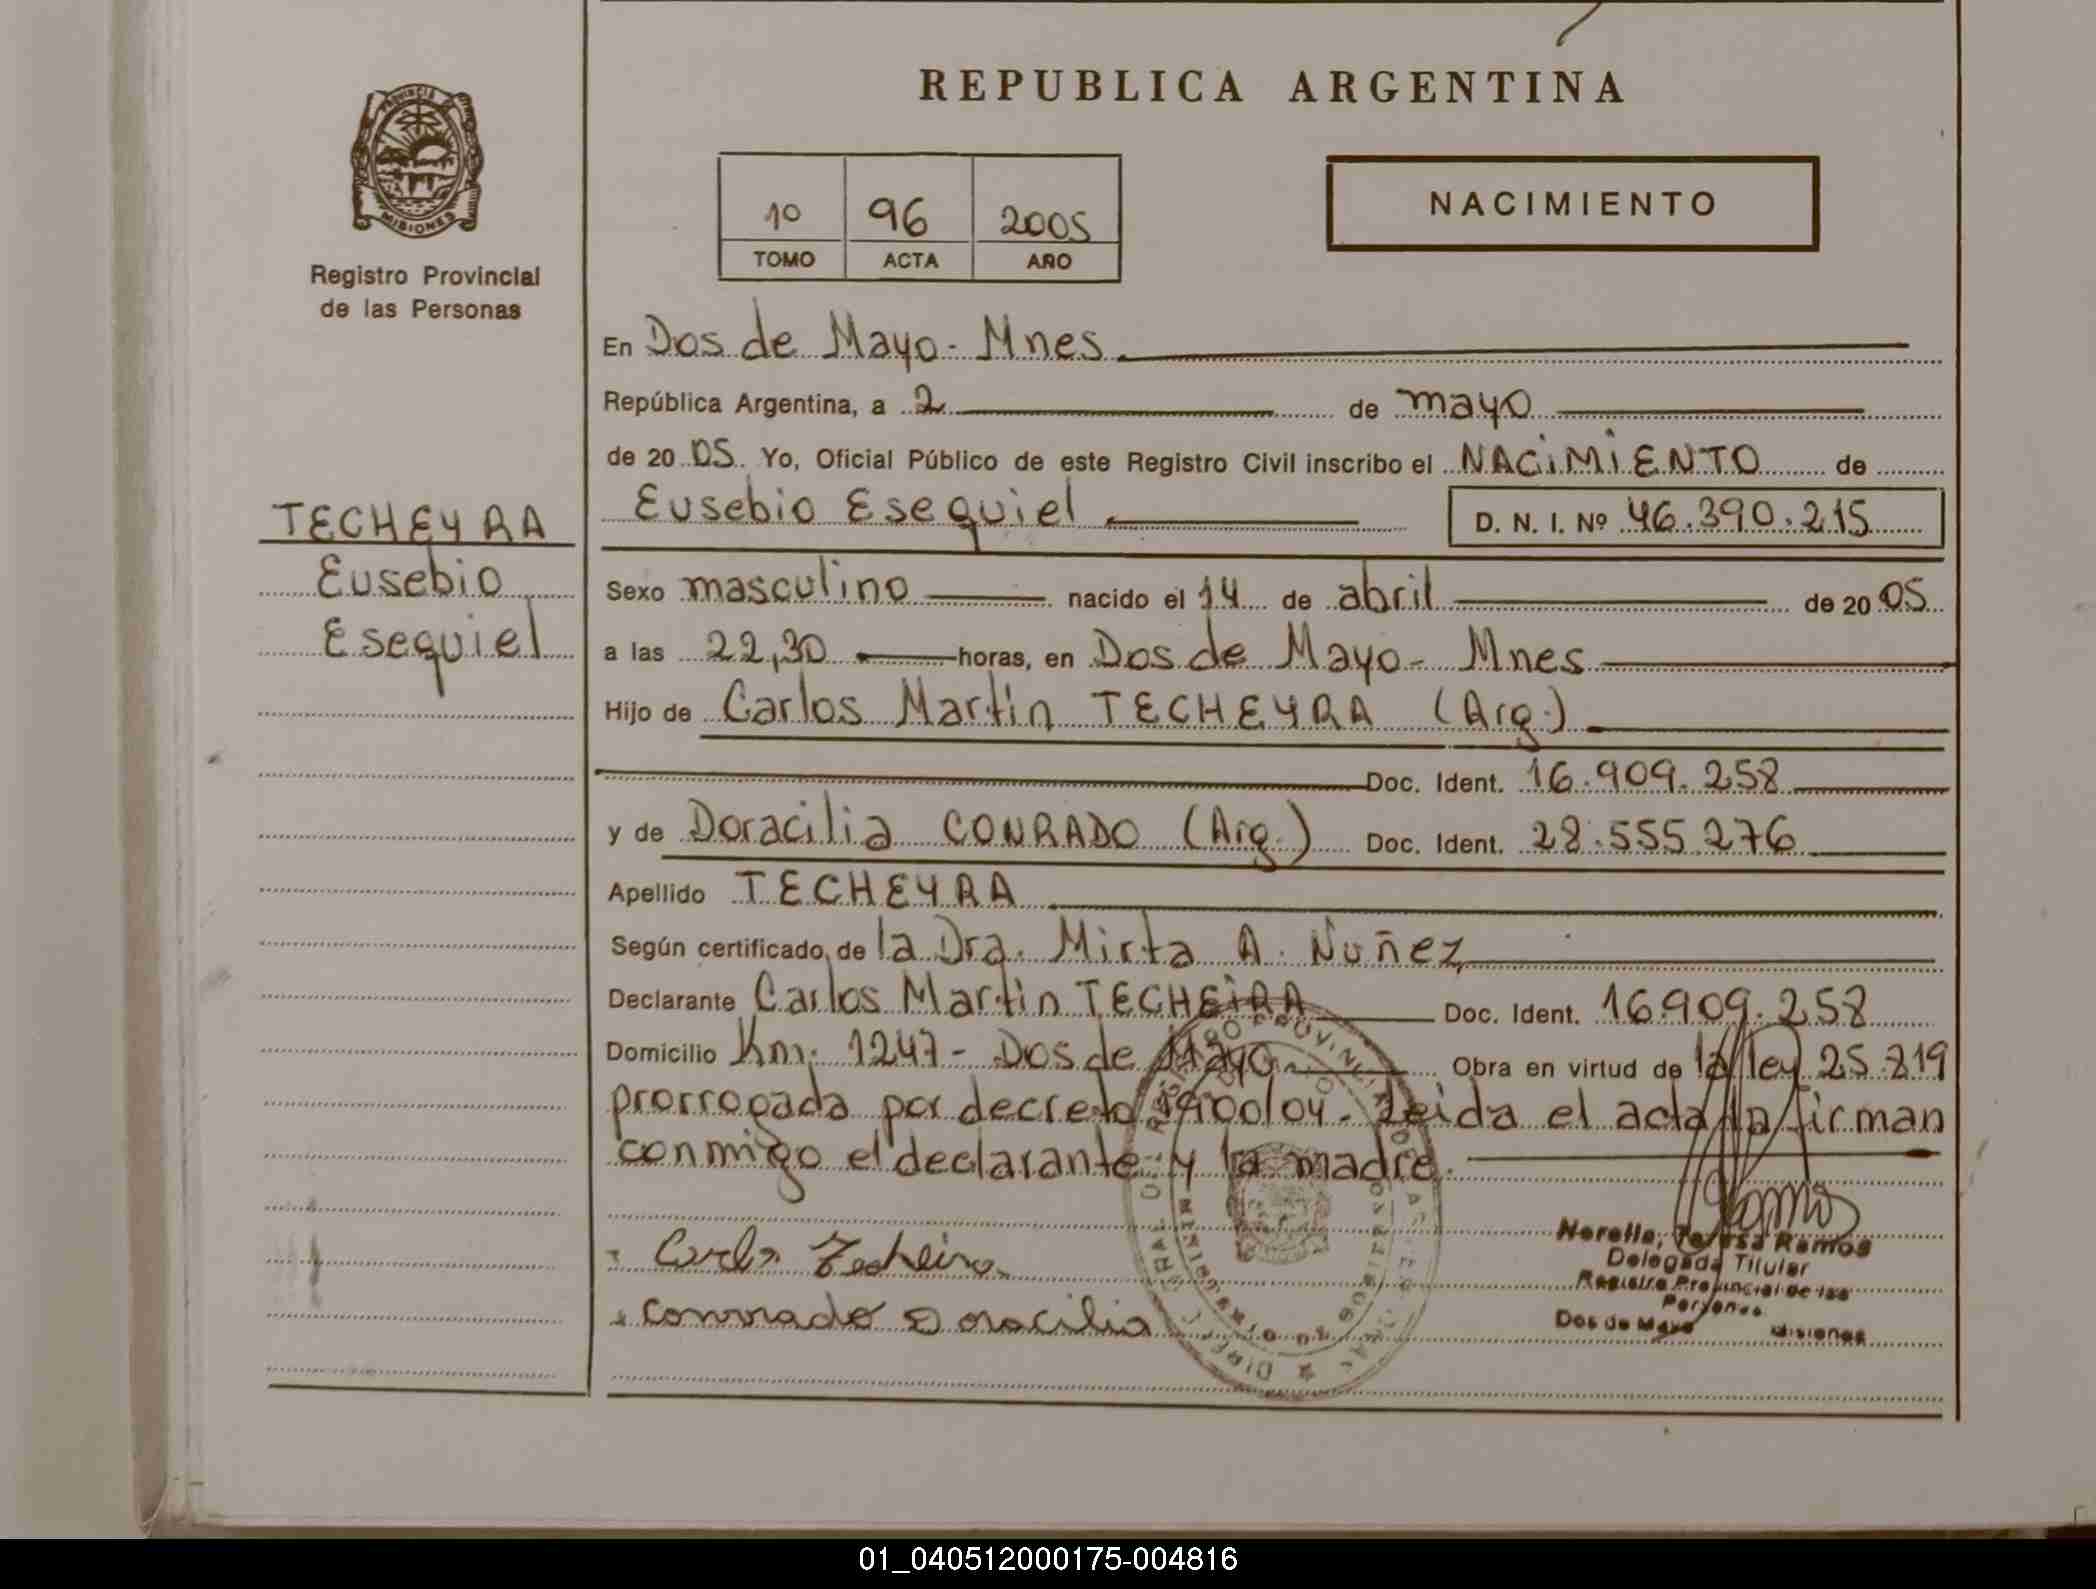 REPUBLICA ARGENTINA
PROVINCIA DE
MISIONES
Registro Provincial
de las Personas
1º 96 2005
TOMO ACTA AÑO
NACIMIENTO
En Dos de Mayo - Mnes
República Argentina, a 2 de mayo
de 2005. Yo, Oficial Público de este Registro Civil inscribo el NACIMIENTO de
Eusebio Esequiel D. N. I. Nº 46.390.215
TECHEYRA
Eusebio
Esequiel
Sexo masculino nacido el 14 de abril de 2005
a las 22,30 horas, en Dos de Mayo - Mnes
Hijo de Carlos Martin TECHEYRA (Arg.)
Doc. Ident. 16.909.258
y de Doracilia CONRADO (Arg.) Doc. Ident. 28.555.276
Apellido TECHEYRA
Según certificado de la Dra. Mirta A. Nuñez
Declarante Carlos Martin TECHEIRA Doc. Ident. 16909.258
Domicilio Km. 1247 - Dos de Mayo Obra en virtud de la ley 25.819
prorrogada por decreto 1900/04. Leida el acta la firman
conmigo el declarante y la madre.
Carlos Techeira
Conrado Doracilia
Norella, Teresa Ramos
Delegada Titular
Registro Provincial de las
Personas
Dos de Mayo Misiones
01_040512000175-004816